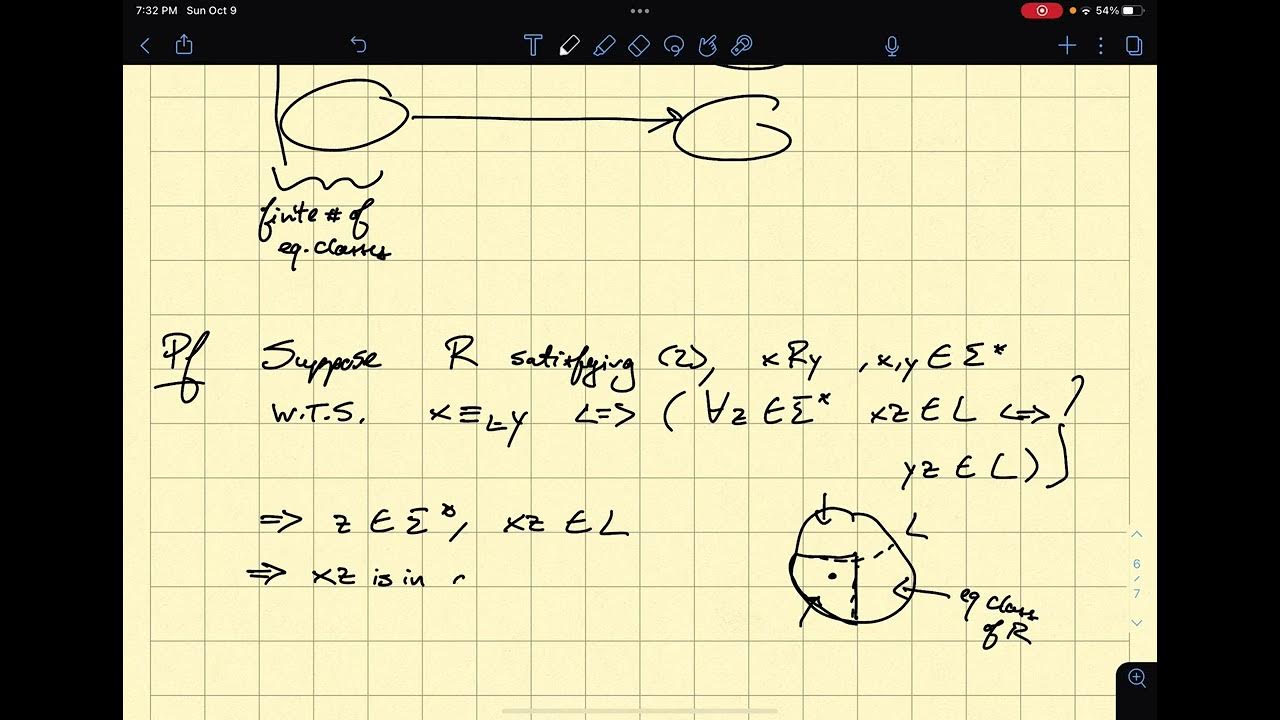 7:32 PM Sun Oct 9
54%
finite # of
eq. classes
Pf Suppose R satisfying (2), xRy , x,y ∈ Σ*
W.T.S. x ≡_L y <=> ( ∀z ∈ Σ* xz ∈ L <=>
yz ∈ L )
=> z ∈ Σ*, xz ∈ L
L
=> xz is in
eq class
of R
6
/
7